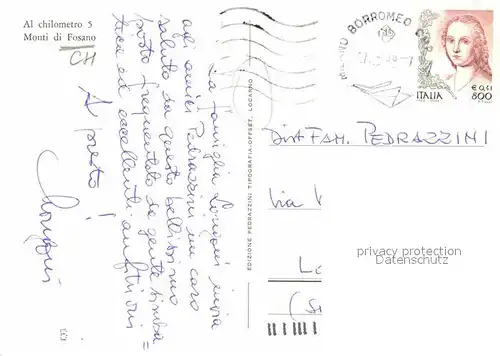 Al chilometro 5
Monti di Fosano
CH
La famiglia Longoni invia
agli amici Pedrazzini un caro
saluto da questo bellissimo
posto frequentato da gente simpa=
tica ed eccellenti anfitrioni
A presto!
EDIZIONE PEDRAZZINI TIPOGRAFIA-OFFSET, LOCARNO
BORROMEO
ITALIA
€ 0,41
800
Dist FAM. PEDRAZZINI
Via
Lo
privacy protection
Datenschutz